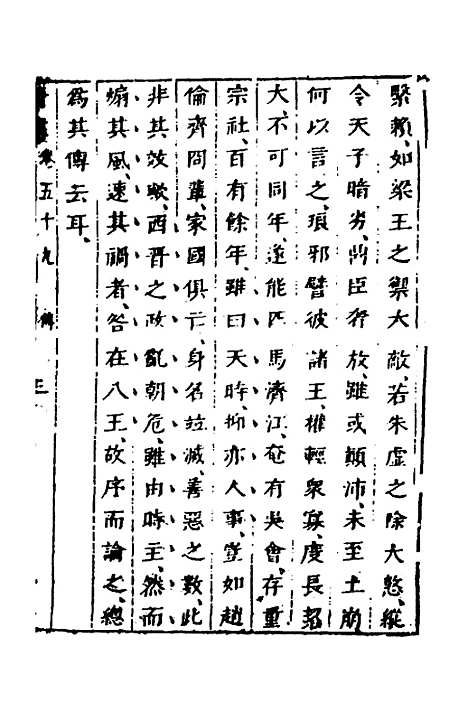 緊賴、如梁王之禦大敵、若朱虛之除大憝、縱
令天子暗劣、鼎臣奢放、雖或顛沛、未至土崩
何以言之、琅邪譬彼諸王、權輕衆寡、度長絜
大、不可同年、遂能匹馬濟江、奄有吳會、存重
宗社、百有餘年、雖曰天時、抑亦人事、豈如趙
倫齊冏輩、家國俱亡、身名竝滅、善惡之數、此
非其效歟、西晉之政亂朝危、雖由時主、然而
煽其風、速其禍者、咎在八王、故序而論之、總
爲其傳云耳、
卷五十九 傳